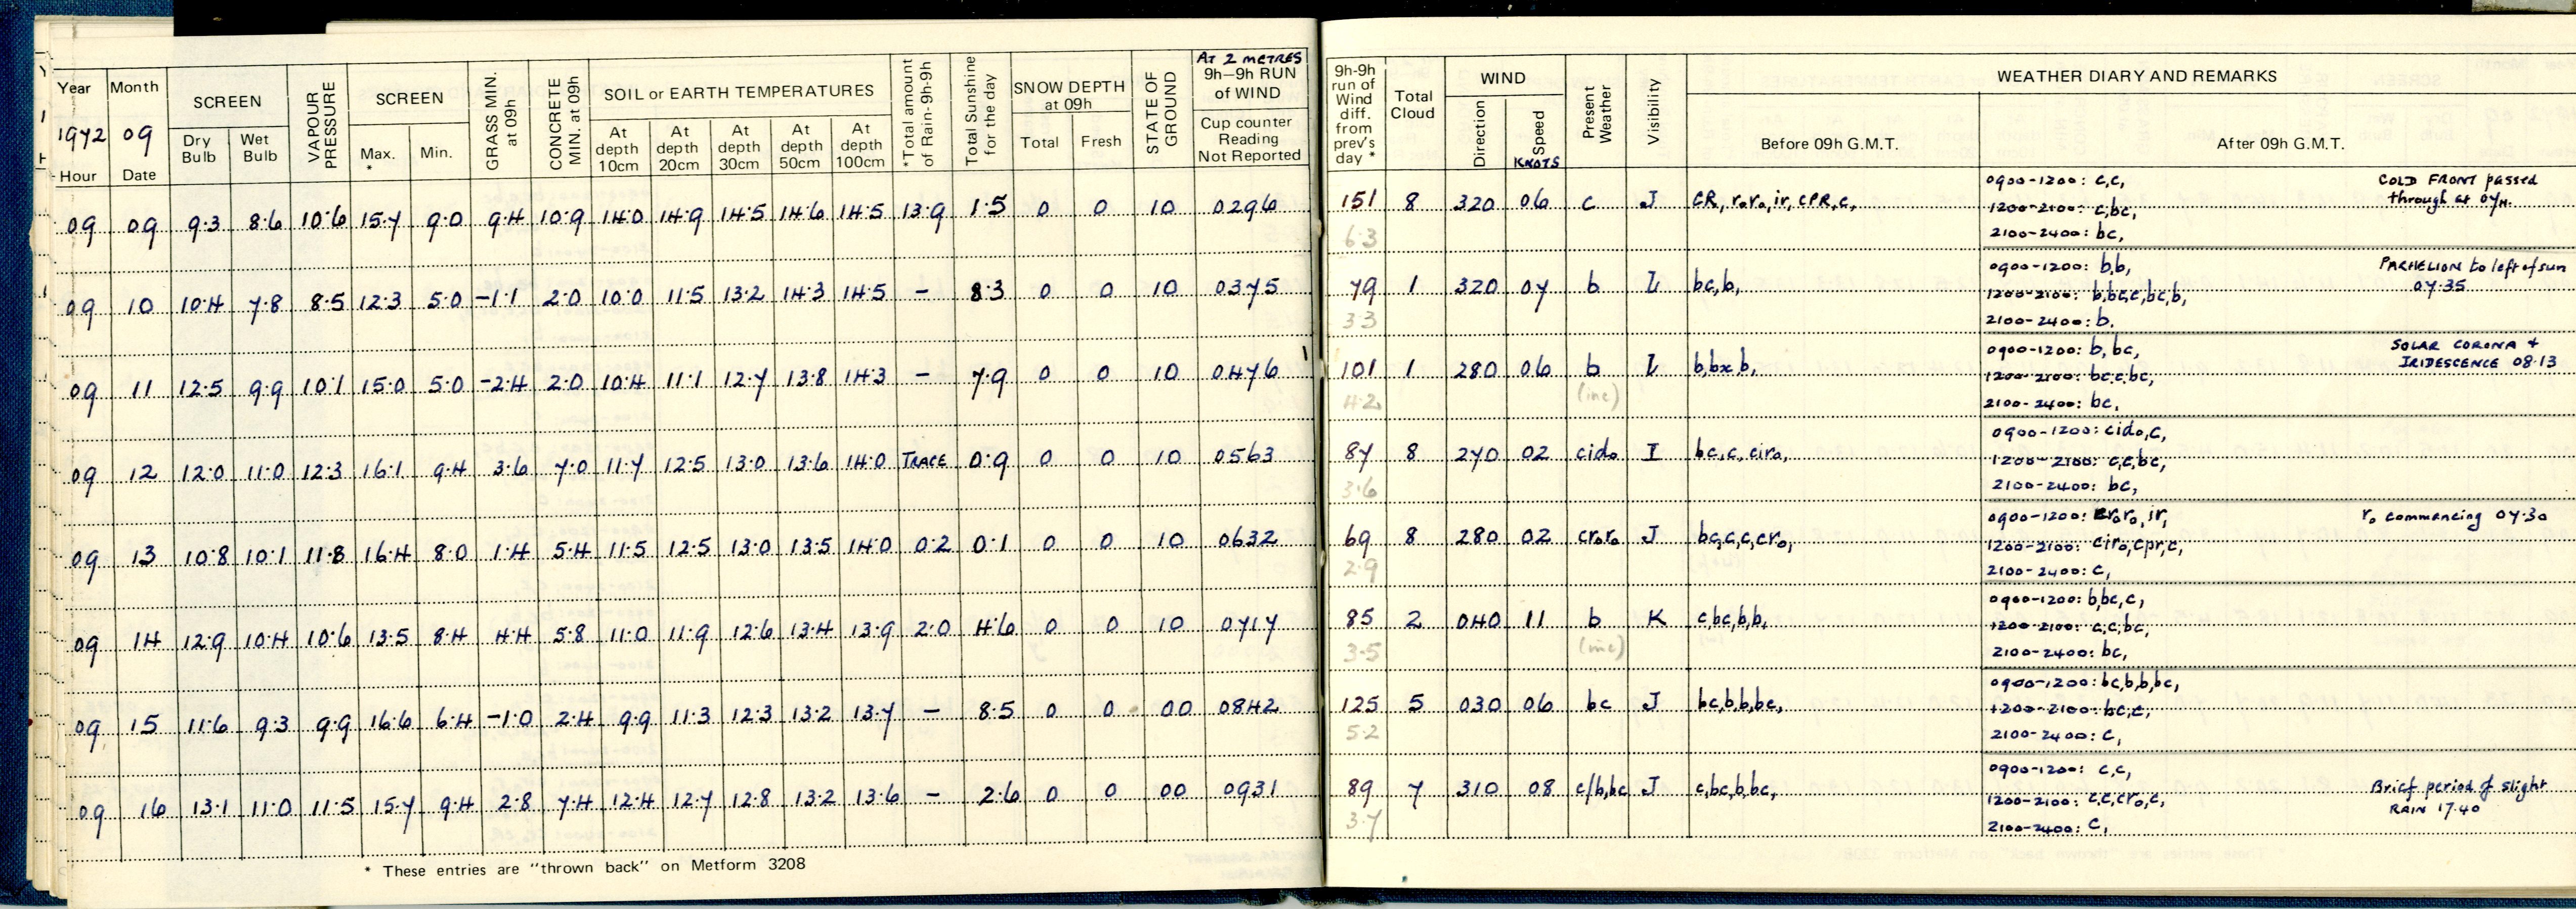 Year Month SCREEN VAPOUR PRESSURE SCREEN GRASS MIN. at 09h CONCRETE MIN. at 09h SOIL or EARTH TEMPERATURES *Total amount of Rain-9h-9h Total Sunshine for the day SNOW DEPTH at 09h STATE OF GROUND AT 2 METRES 9h—9h RUN of WIND
1972 09 Dry Bulb Wet Bulb Max. * Min. At depth 10cm At depth 20cm At depth 30cm At depth 50cm At depth 100cm Total Fresh Cup counter Reading Not Reported
Hour Date
09 09 9.3 8.6 10.6 15.7 9.0 9.4 10.9 14.0 14.9 14.5 14.6 14.5 13.9 1.5 0 0 10 0296
09 10 10.4 7.8 8.5 12.3 5.0 -1.1 2.0 10.0 11.5 13.2 14.3 14.5 - 8.3 0 0 10 0375
09 11 12.5 9.9 10.1 15.0 5.0 -2.4 2.0 10.4 11.1 12.7 13.8 14.3 - 7.9 0 0 10 0476
09 12 12.0 11.0 12.3 16.1 9.4 3.6 7.0 11.7 12.5 13.0 13.6 14.0 TRACE 0.9 0 0 10 0563
09 13 10.8 10.1 11.8 16.4 8.0 1.4 5.4 11.5 12.5 13.0 13.5 14.0 0.2 0.1 0 0 10 0632
09 14 12.9 10.4 10.6 13.5 8.4 4.4 5.8 11.0 11.9 12.6 13.4 13.9 2.0 4.6 0 0 10 0717
09 15 11.6 9.3 9.9 16.6 6.4 -1.0 2.4 9.9 11.3 12.3 13.2 13.7 - 8.5 0 0 00 0842
09 16 13.1 11.0 11.5 15.7 9.4 2.8 7.4 12.4 12.7 12.8 13.2 13.6 - 2.6 0 0 00 0931
* These entries are "thrown back" on Metform 3208
9h-9h run of Wind diff. from prev's day * Total Cloud WIND Direction Speed KNOTS Present Weather Visibility WEATHER DIARY AND REMARKS
Before 09h G.M.T. After 09h G.M.T.
151 8 320 06 c J CR, roro, ir, CPR, c, 0900-1200: c,c, COLD FRONT passed
1200-2100: c,bc, through at 07H.
6.3 2100-2400: bc,
79 1 320 07 b L bc,b, 0900-1200: b,b, PARHELION to left of sun
1200-2100: b,bc,c,bc,b, 07.35
3.3 2100-2400: b.
101 1 280 06 b L b,bx b, 0900-1200: b, bc, SOLAR CORONA +
(inc) 1200-2100: bc,c,bc, IRIDESCENCE 08.13
4.2 2100-2400: bc,
87 8 270 02 cido I bc, c, ciro, 0900-1200: cido, c,
1200-2100: c,c,bc,
3.6 2100-2400: bc,
69 8 280 02 croro J bc,c,c,cro, 0900-1200: croro, ir, ro commencing 07.30
1200-2100: ciro, cpr,c,
2.9 2100-2400: c,
85 2 040 11 b K c,bc,b,b, 0900-1200: b,bc, c,
(inc) 1200-2100: c,c,bc,
3.5 2100-2400: bc,
125 5 030 06 bc J bc,b,b,bc, 0900-1200: bc,b,b,bc,
1200-2100: bc,c,
5.2 2100-2400: c,
89 7 310 08 c/b,bc J c,bc,b,bc, 0900-1200: c,c, Brief period of slight
1200-2100: c,c,cro,c, RAIN 17.40
3.7 2100-2400: c,